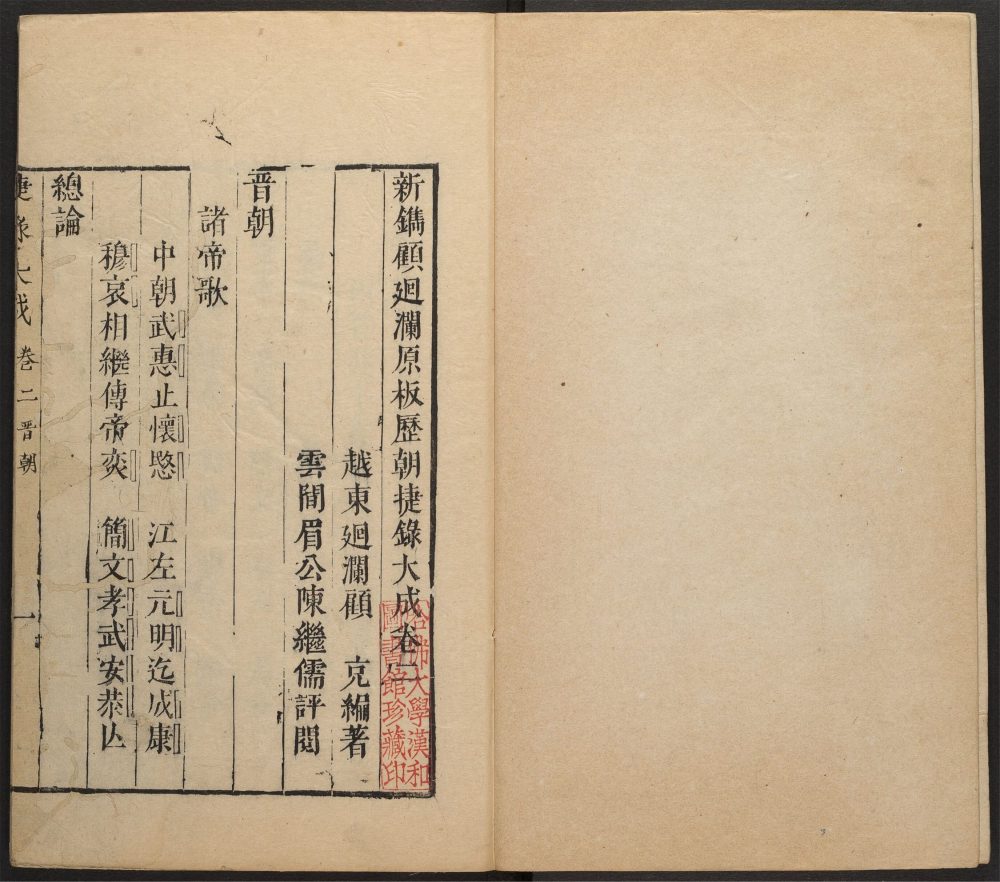 新鐫顧廻瀾原板歷朝捷錄大成卷二
越東廻瀾顧 充編著
雲間眉公陳繼儒評閱
晋朝
諸帝歌
中朝武惠止懷愍 江左元明迄成康
穆哀相繼傳帝奕 簡文孝武安恭亾
總論
捷錄大成 卷二 晋朝 一
哈佛大學漢和
圖書館珍藏印